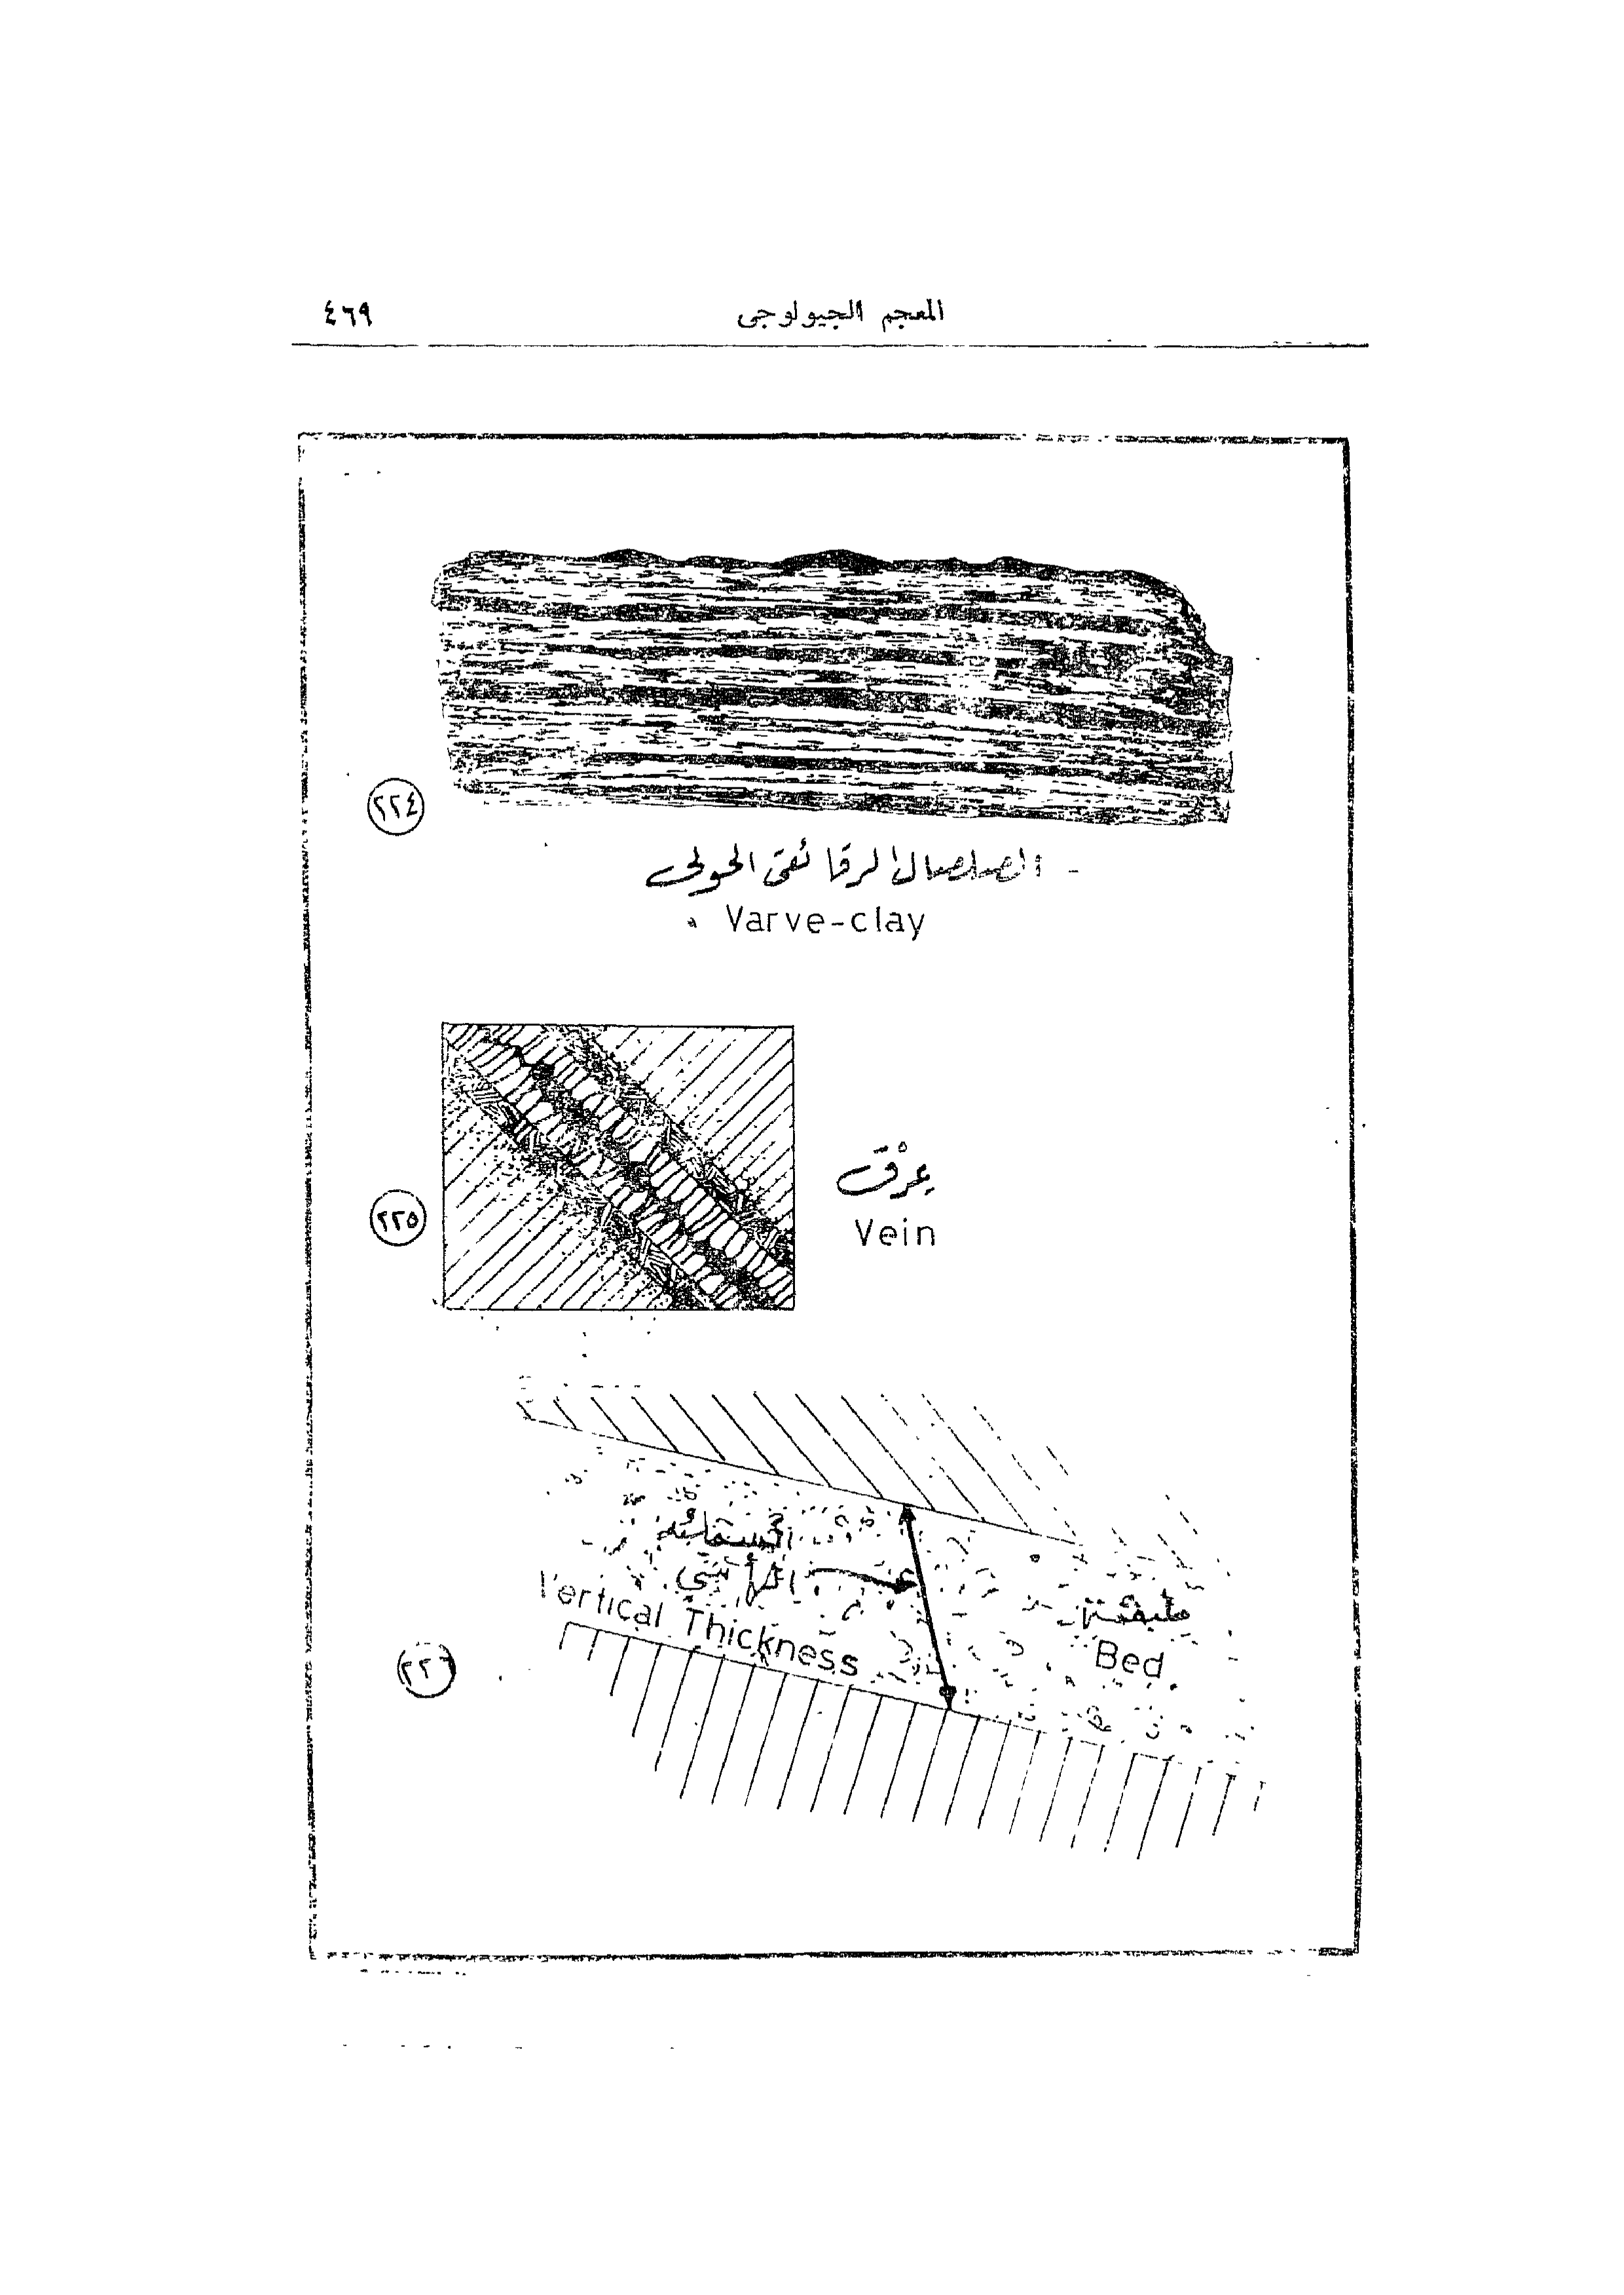 المعجم الجيولوجى
٤٦٩
٢٢٤
الصلصال الرقائقى الحولى
Varve-clay
عِرْق
Vein
٢٢٥
الرأسى
Vertical Thickness
طبقة
Bed
٢٢٦